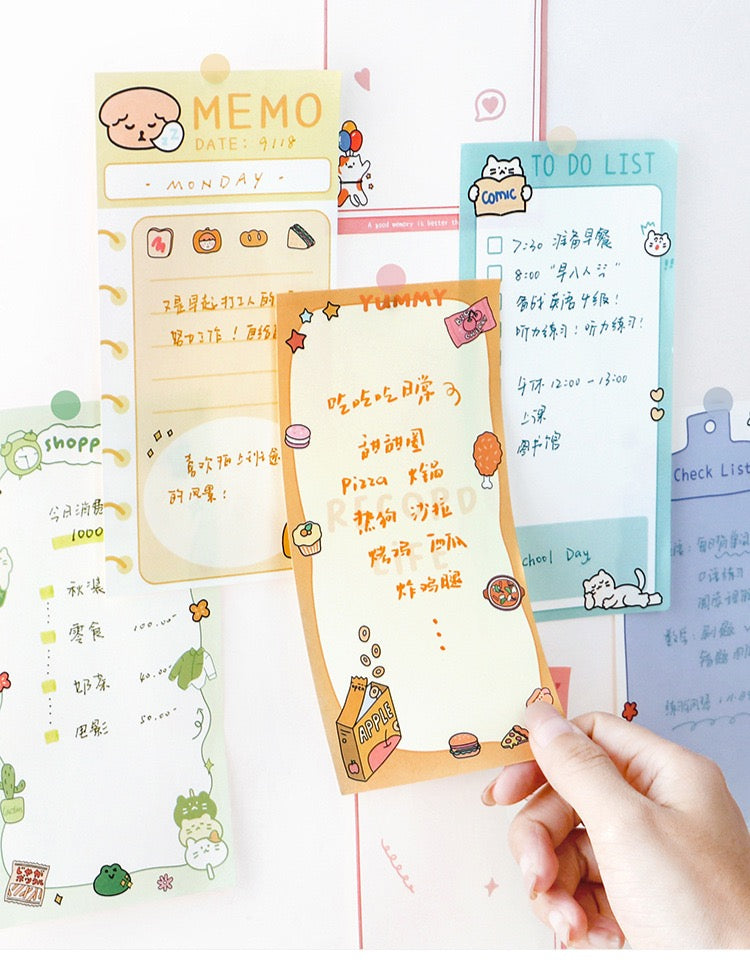 MEMO
DATE: 9118
- MONDAY -
又是早起打工人的
努力了作！
喜欢拍上班途
的风景！
A good memory is better th
TO DO LIST
COMIC
7:30 准备早餐
8:00 "早八人"
备战英语4级！
听力练习：听力练习！
午休 12:00 - 13:00
上课
图书馆
chool Day
YUMMY
吃吃吃日常
甜甜圈
Pizza 火锅
热狗 沙拉
烤鸡 西瓜
炸鸡腿
RECORD
LiFE
APPLE
shopp
今日消费
1000
秋装
零食 100.00
奶茶 40.00
电影 50.00
じゃが
ポックル
Check List
口语练习